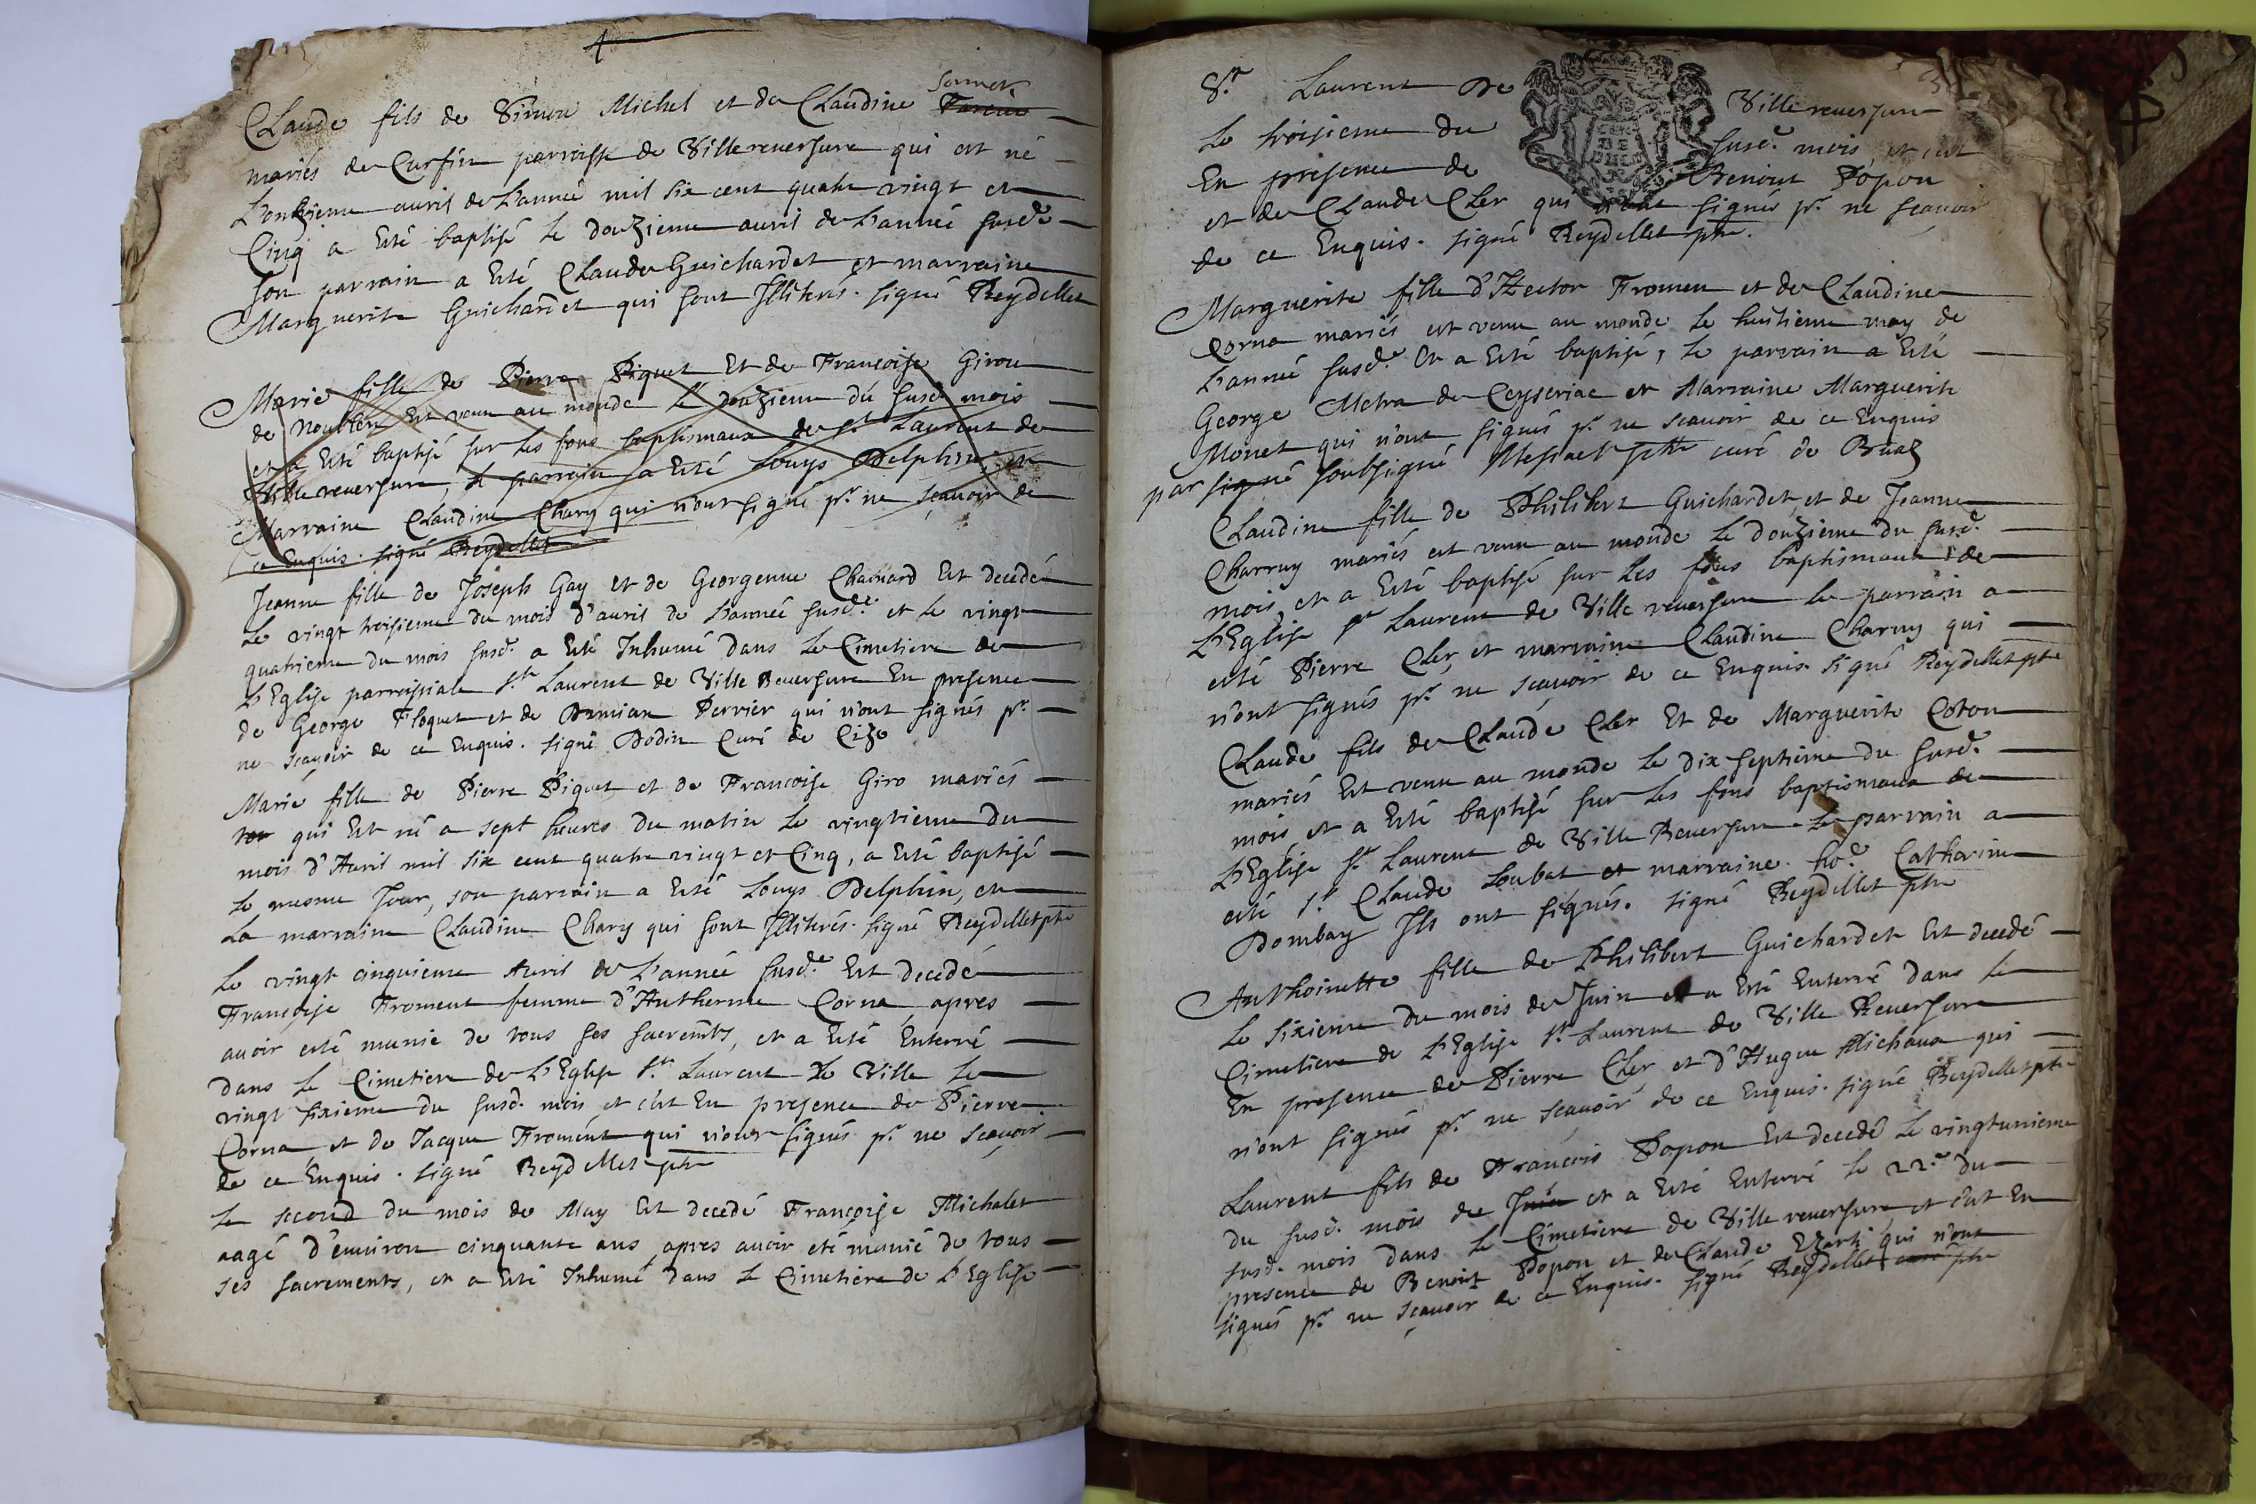 4
Claude fils de Simon Michel et de Claudine Sornet
mariés de Curfin parroisse de Villereuersure qui est né
L'onzieme auril de L'année mil six cent quatre vingt et
Cinq a Esté baptisé le douzieme auril de L'année susd.e
son parrain a Esté Claude Guichardet et marraine
Marguerite Guichardet qui sont Illiterés. signé Reydellet
Marie fille de Pierre Piquet Et de Francoise Girou
de Noublen Est venu au monde le douzieme du susd. mois
et a Esté baptisé sur les fons baptismaux de St Laurent de
Villereuersure, le parrain a Esté Louys Delphin, et
Marraine Claudine Chary qui n'ont signé pr ne sçauoir de
ce Enquis. signé Reydellet
Jeanne fille de Joseph Gay et de Georgenne Chainard Est decedé
Le vingt troisieme du mois d'auril de L'année susd.e et le vingt
quatrieme du mois susd. a Esté Inhumé dans le Cimetiere de
L'Eglise parroissiale St Laurent de Ville Reuersure En presence
de George Floquet et de Damian Perrier qui n'ont signés pr
ne scauoir de ce Enquis. signé Dodin Curé de Cize
Marie fille de Pierre Piquet et de Francoise Giro mariés
qui Est né a sept heures du matin le vingtieme du
mois d'Auril mil six cent quatre vingt et Cinq, a Esté baptisé
le mesme Jour, son parrain a Esté Louys Delphin, et
La marraine Claudine Chary qui sont Illiterés. signé Reydellet ptre
Le vingt cinquieme Auril de L'année susd.e Est decedé
Françoise Froment femme d'Antherme Corna, apres
auoir esté munie de tous ses sacremts, et a Esté Enterré
dans le Cimetiere de L'Eglise St Laurent de Ville le
vingt sixieme du susd. mois et c'est En presence de Pierre
Corna et de Jacque Froment qui n'ont signés pr ne scauoir
de ce Enquis. signé Reydellet ptre
Le second du mois de May Est decedé Françoise Michalet
aagé d'enuiron cinquante ans apres auoir eté munie de tous
ses sacrements, et a Esté Inhumé dans le Cimetiere de L'Eglise
St Laurent de Villereuersure
Le troisieme du susd. mois, et c'est
En presence de Benoist Popon
et de Claude Cler qui n'ont signés pr ne scauoir
de ce Enquis. signé Reydellet ptre.
Marguerite fille d'Hector Fromen et de Claudine
Corna mariés est venu au monde le huitieme may de
L'année susd.e Et a Esté baptisé, le parrain a Esté
George Metra de Ceyseriac et Marraine Marguerite
Monet qui n'ont signés pr ne scauoir de ce Enquis
par signé soubsigné ptre curé de
Claudine fille de Philibert Guichardet, et de Jeanne
Charruy mariés est venu au monde le douzieme du susd.
mois, et a Esté baptisé sur les fons baptismaux de
L'Eglise St Laurent de Ville reuersure le parrain a
esté Pierre Cler, et marraine Claudine Charuy qui
n'ont signés pr ne scauoir de ce Enquis. signé Reydellet ptre
Claude fils de Claude Cler Et de Marguerite Coton
mariés Est venu au monde le dix septieme du susd.
mois et a Esté baptisé sur les fons baptismaux de
L'Eglise St Laurent de Ville Reuersure le parrain a
esté Sr Claude Loubat et marraine ho.e Catharine
Dombay Ils ont signés. signé Reydellet ptre
Anthoinette fille de Philibert Guichardet Est decedé
le sixieme du mois de Juin et a Esté Enterré dans le
Cimetiere de L'Eglise St Laurent de Ville Reuersure
En presence de Pierre Cler et d'Hugue Michaux qui
n'ont signés pr ne scauoir de ce Enquis. signé Reydellet ptre
Laurent fils de François Popon Est decedé le vingtunieme
du susd. mois de Juin et a Esté Enterré le 22.e du
susd. mois dans le Cimetiere de Ville reuersure, et c'est En
presence de Benoist Popon et de Claude qui n'ont
signés pr ne scauoir de ce Enquis. signé Reydellet curé ptre